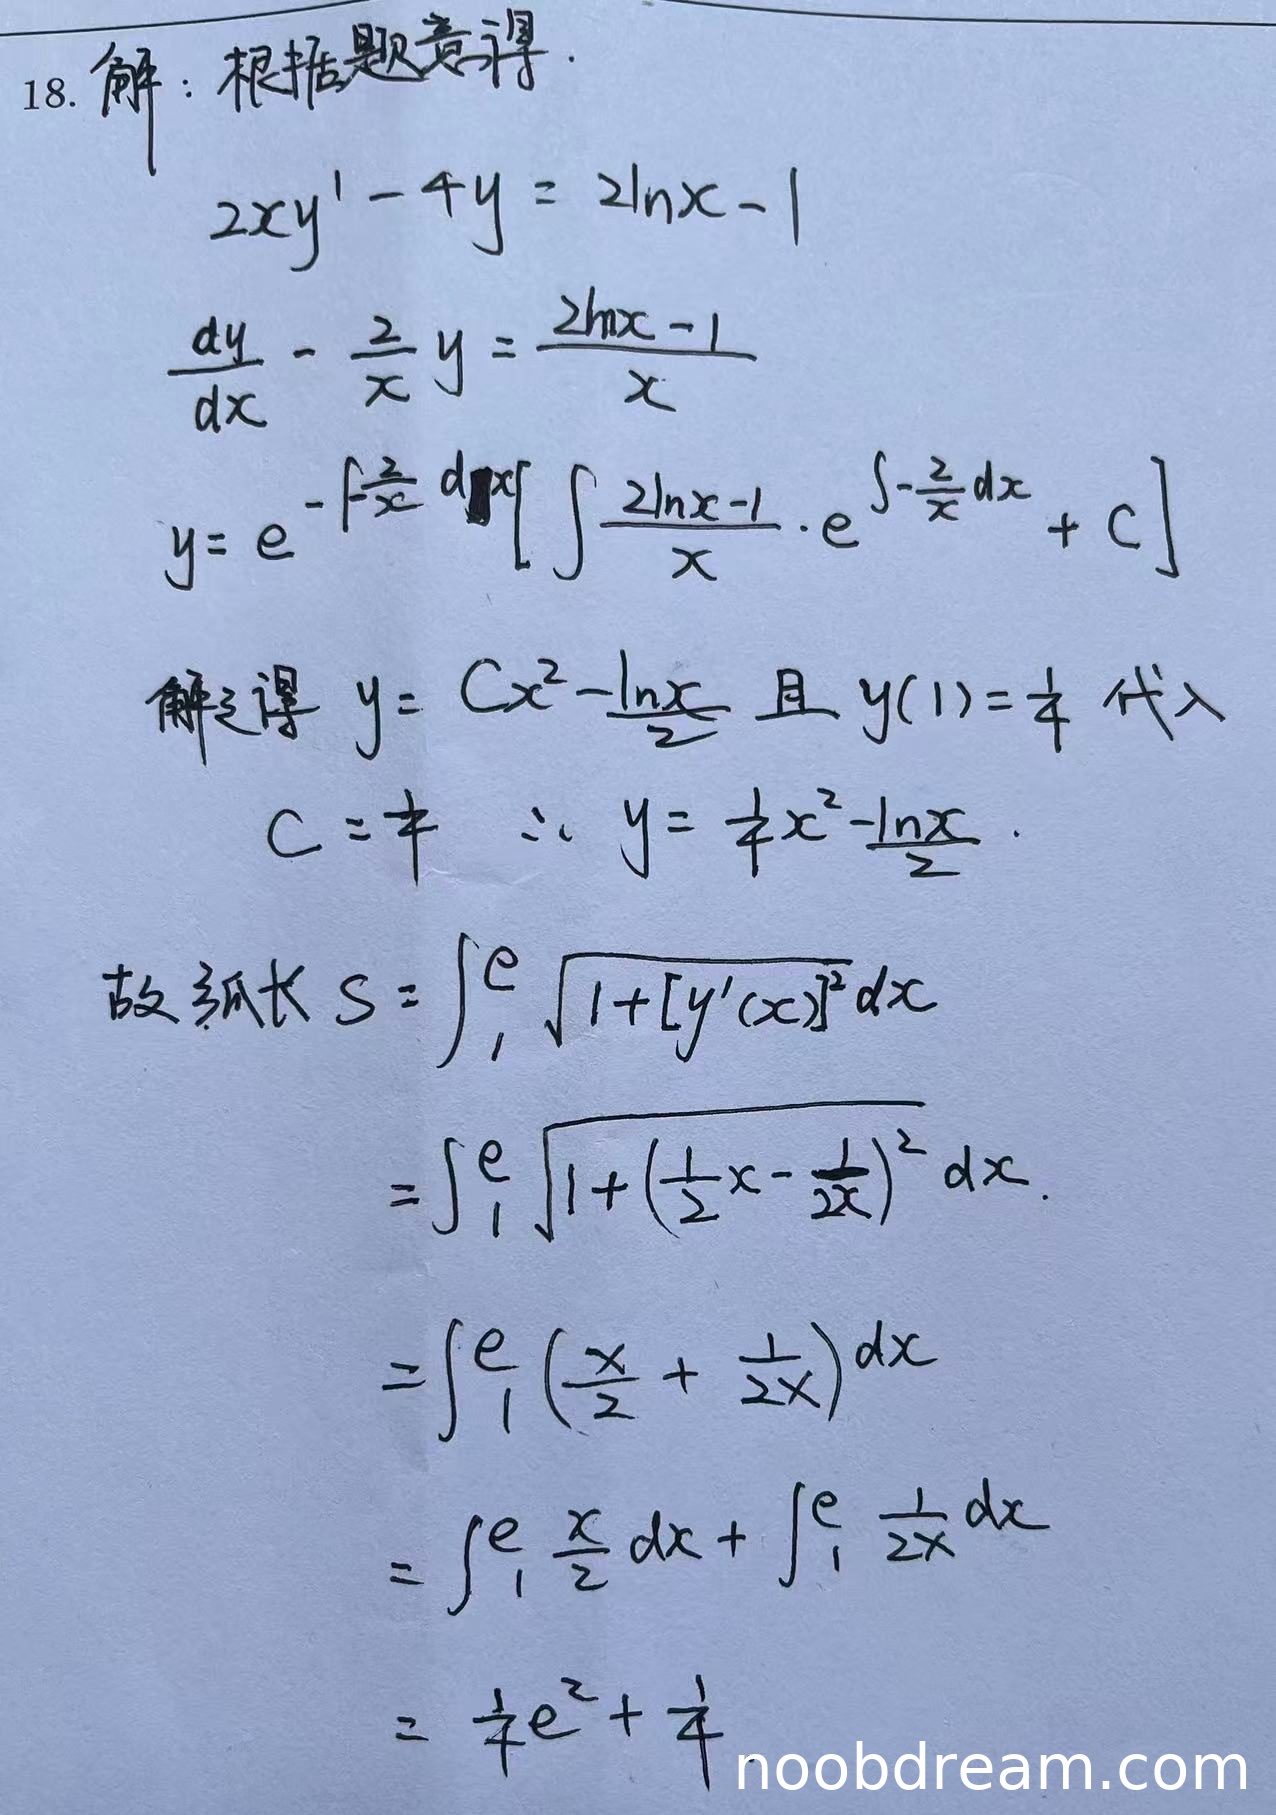 18. 解：根据题意得.
2xy' - 4y = 2lnx - 1
dy/dx - 2/x y = (2lnx - 1)/x
y = e^(-∫-2/x dx) [ ∫ (2lnx-1)/x · e^(∫-2/x dx) + C ]
解之得 y = Cx² - lnx/2 且 y(1) = 1/4 代入
C = 1/4 ∴ y = 1/4 x² - lnx/2 .
故弧长 S = ∫₁^e √(1+[y'(x)]²) dx
= ∫₁^e √(1+(1/2 x - 1/2x)²) dx.
= ∫₁^e (x/2 + 1/2x) dx
= ∫₁^e x/2 dx + ∫₁^e 1/2x dx
= 1/4 e² + 1/4
noobdream.com